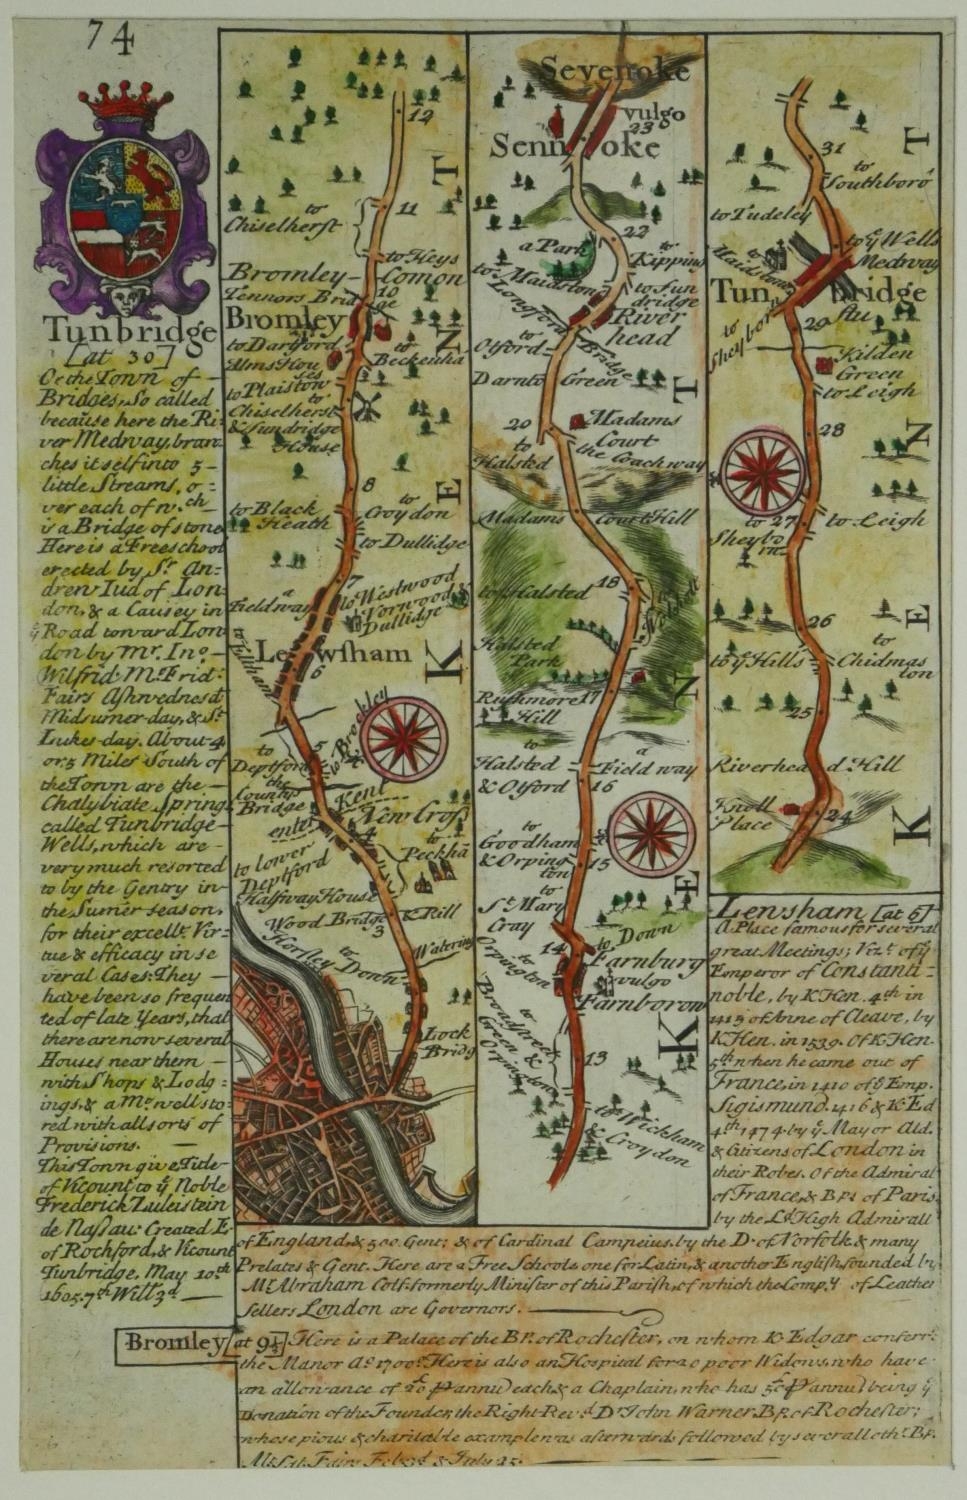 74
Tunbridge
[at 30]
Or the Town of
Bridges, So called
because here the Ri:
ver Medway, bran:
ches it self into 5
little Streams, o:
ver each of wch.
is a Bridge of stone
Here is a Freeschool
erected by Sr. An:
drew Jud of Lon:
don, & a Causey in
ye Road toward Lon
don by Mr. Jno.
Wilfrid. Mt. Frid:
Fairs Ashwednesd.
Midsumer-day, & St.
Lukes-day. About 4
or 5 Miles South of
the Town are the
Chalybiate Spring
called Tunbridge
Wells, which are
very much resorted
to by the Gentry in
the Sumer season,
for their excellt. Vir:
tue & efficacy in se
veral Cases: They
have been so frequen
ted of late Years, that
there are now several
Houses near them
with Shops & Lodg:
ings, & a Mt. well sto:
red with all sorts of
Provisions.
This Town give Title
of Vicount to ye Noble
Frederick Zuleistein
de Nassau: Created E.
of Rochford, & Vicount
Tunbridge, May 10th
1695. 7th Will 3d
12
to
Chiselherst
11
to Heys
Comon
Bromley
Tennors Bridge
10
Bromley
to Dartford
to
Beckenha
Alms Hou
ses
to Plaistow
9
to
Chiselherst
& Sundridge
House
8
to Black
Heath
to
Croydon
to Dullidge
7
a
Field way
to Westwood
Norwood &
Dullidge
Lewsham
6
to Eltham
KENT
5
to Brockley
to
Deptford
the
County
Bridge
enter
Kent
4
New Cross
to
Peckhā
to lower
Deptford
Halfway House
K Rill
Wood Bridge
3
Horsley
to
Down
Watering
Lock
Bridg
Sevenoke
vulgo
23
Sennoke
22
a Park
to
Kipping
to Maidston
to Sun
dridge
Longford
River
head
to
Otford
Bridge
Darnto
Green
20
Madams
Court
the Coach way
to
Halsted
Madams
Court Hill
to Halsted
18
Halsted
Park
Rushmore
Hill
17
to
Halsted
& Otford
a
Field way
16
to
Goodham
& Orping
ton
15
to
St. Mary
Cray
to Down
14
to
Orpington
Farnburg
vulgo
Farnborow
to
Broadstreet
Green &
Orpington
13
to Wickham
& Croydon
KENT
31
to
Southboro
to Tudeley
to ye Wells
to
Maidston
Medway
Tunbridge
to
Sheyborn
29
flu.
Kilden
Green
to Leigh
28
to 27
Sheybo
rn
to Leigh
26
to ye Hills
to
Chidings
ton
25
Riverhead Hill
Knoll
Place
24
KENT
Lewsham [at 6]
A Place famous for several
great Meetings; Vizt. of ye
Emperor of Constanti:
noble, by K Hen. 4th in
1413 of Anne of Cleave, by
K Hen. in 1539. Of K Hen.
5th when he came out of
France, in 1410 of ye Emp.
Sigismund. 1416 & K Ed
4th 1474 by ye Mayor Ald.
& Citizens of London in
their Robes. Of the Admiral
of France, & Bp. of Paris,
by the Ld. High Admirall
of England, & 500 Gent; & of Cardinal Campeius, by the D. of Norfolk & many
Prelates & Gent. Here are 2 Free Schools one for Latin, & another English, founded by
Mr. Abraham Colf formerly Minister of this Parish, of which the Comp.y of Leather
sellers London are Governors.
Bromley [at 9½] Here is a Palace of the Bp. of Rochester, on whom K Edgar conferr'
the Manor Ao. 1700. Here is also an Hospital for 20 poor Widows, who have
an allowance of £20 p Annū each & a Chaplain, who has £50 p Annū being ye
Donation of the Founder, the Right Revd. Dr. John Warner, Bp. of Rochester;
whose pious & charitable example was afterwards followed by severall othr. Bp.
Mt. Sat. Fairs Feb. 3d & July 25.